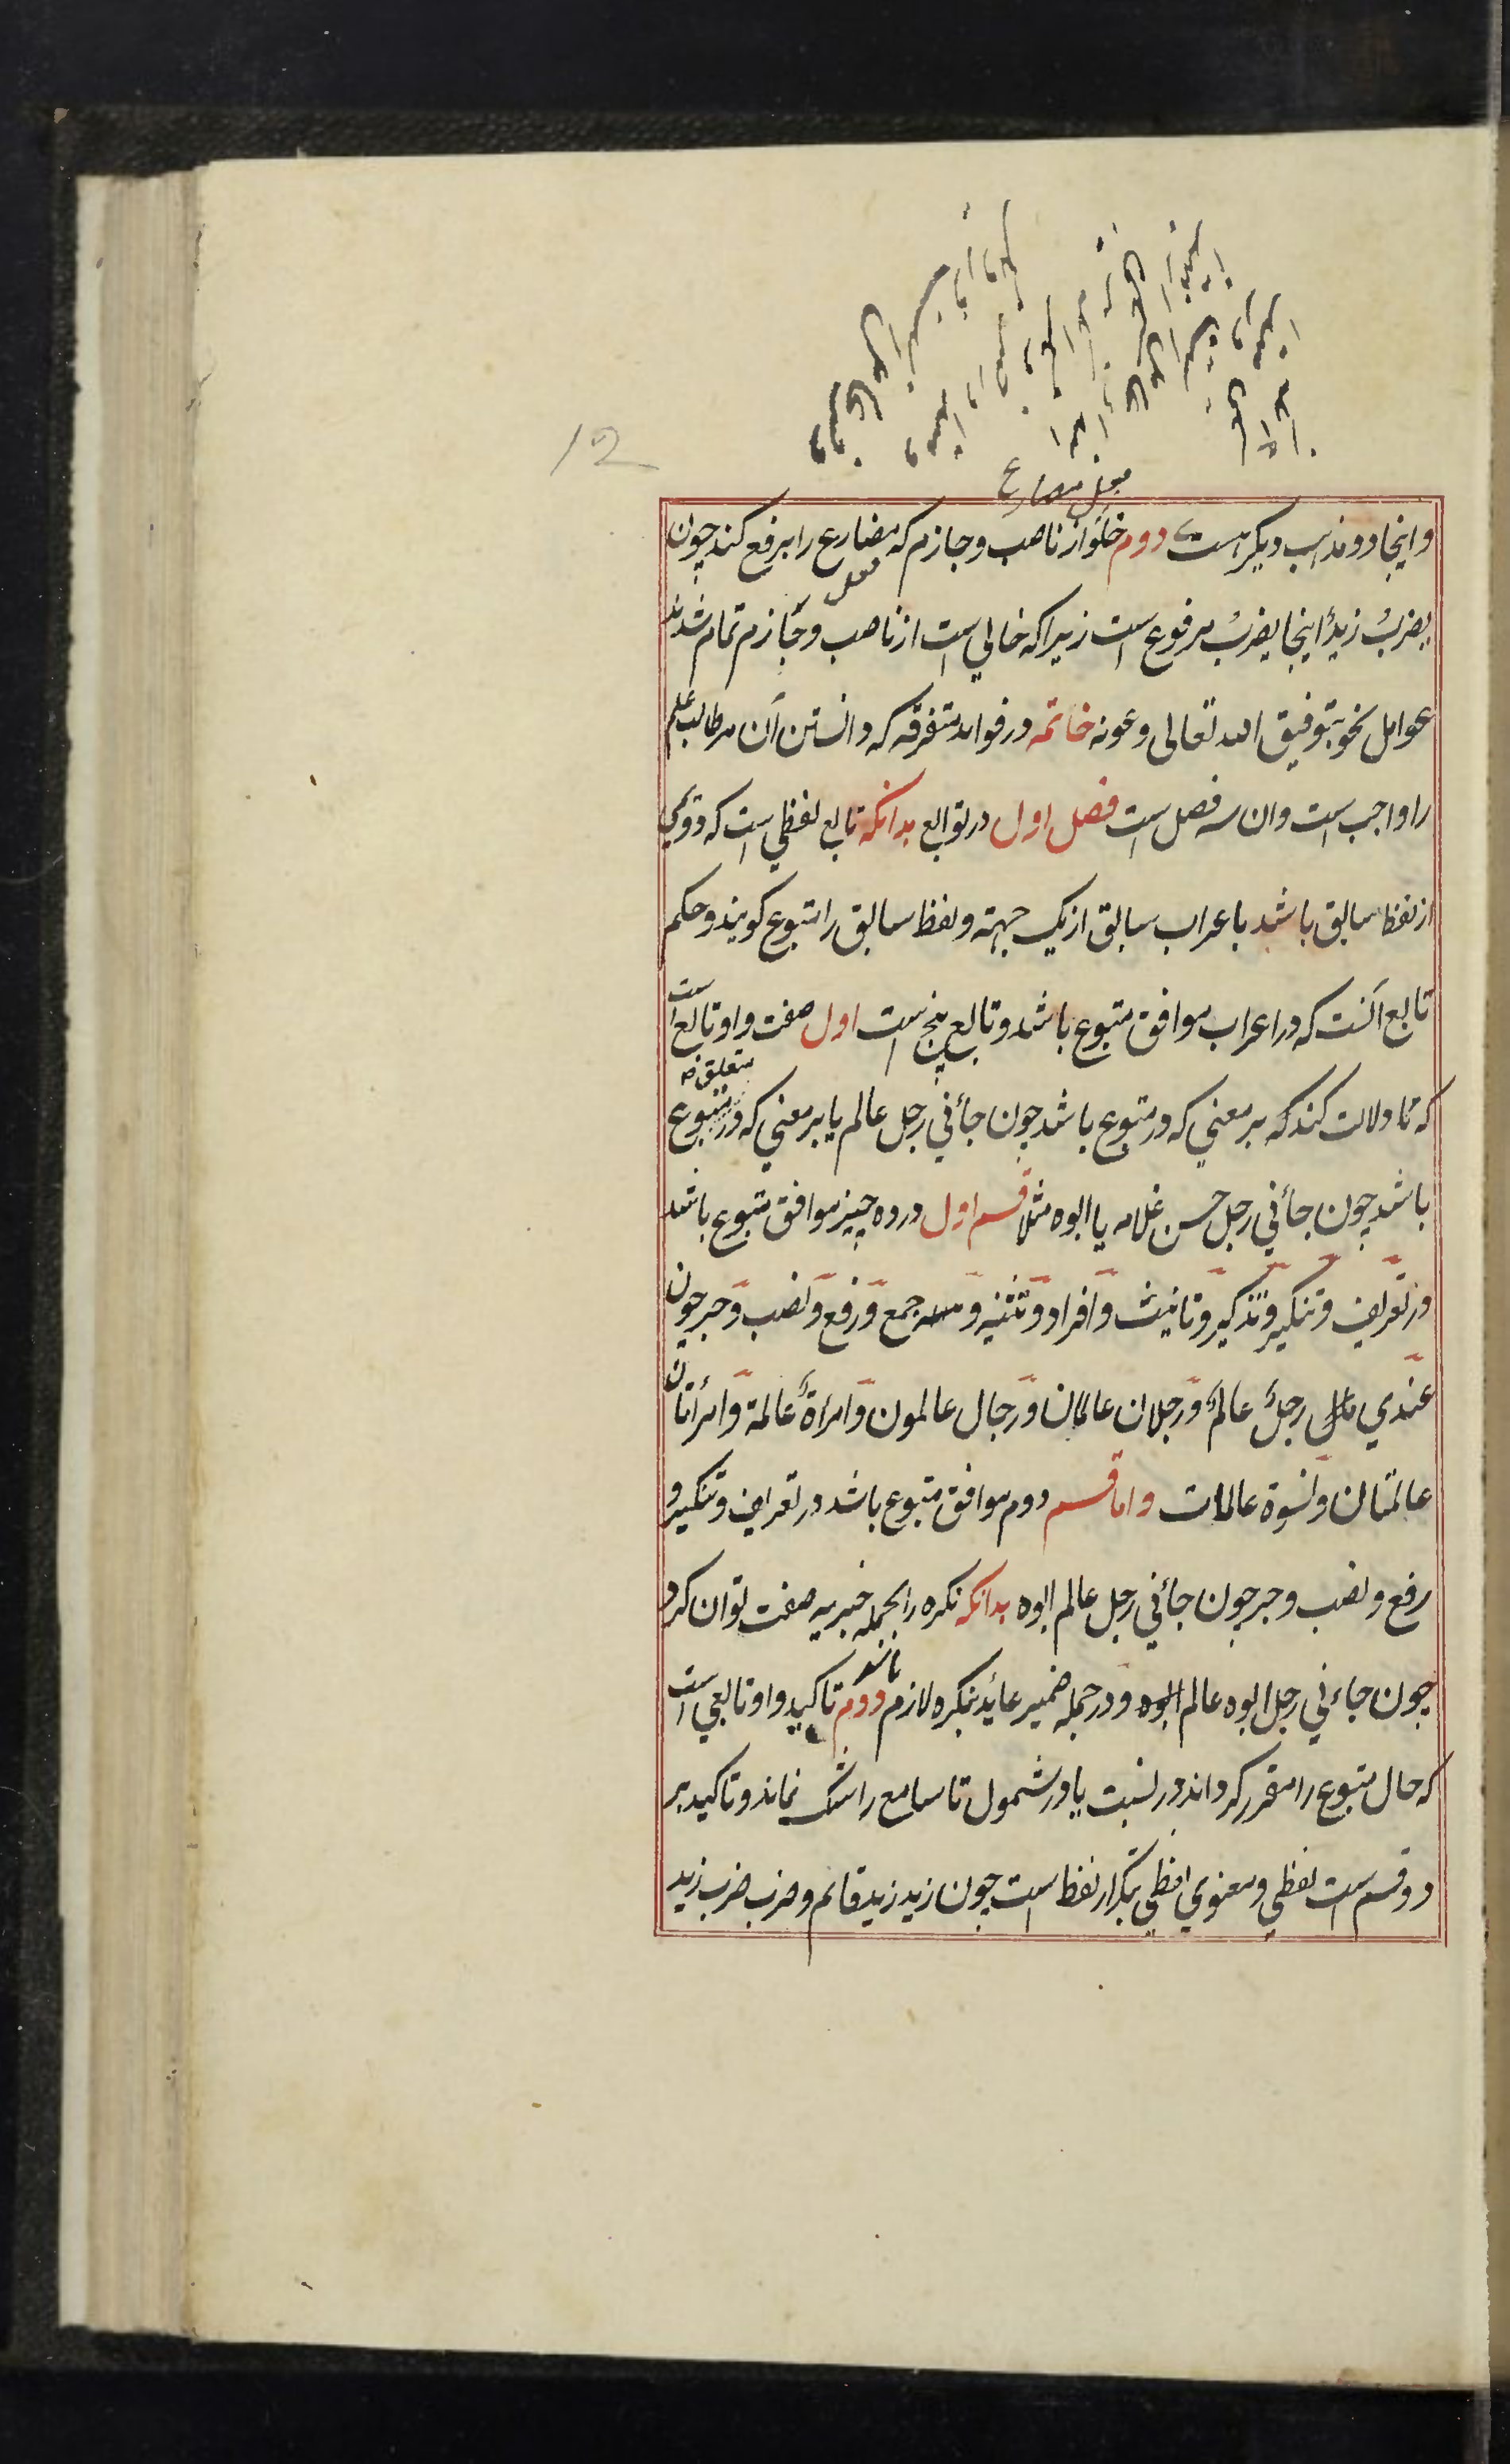 12
فعل مضارع
و اینجا دو مذهب دیگر است دوم خلو از ناصب و جازم که مضارع را برفع کند چون
فعل
یضربُ زیدٌ اینجا یضربُ مرفوع است زیرا که خالی است از ناصب و جازم تمام شدند
عوامل نحو بتوفیق الله تعالی و عونه خاتمه در فواید متفرقه که دانستن آن مر طالب علم
را واجب است و ان سه فصل است فصل اول در توابع بدانکه تابع لفظی است که دومی
از لفظ سابق باشد باعراب سابق از یک جهته و لفظ سابق را متبوع گویند و حکم
تابع آنست که در اعراب موافق متبوع باشد و تابع پنج است اول صفت و او تابع است
متعلق
که تا دلالت کند که بر معنی که در متبوع باشد چون جائنی رجل عالم یا بر معنی که در متبوع
باشد چون جائنی رجل حسن غلامه یا ابوه مثلا قسم اول در ده چیز موافق متبوع باشد
در تعریف و تنکیر و تذکیر و تانیث و افراد و تثنیه و جمع و رفع و نصب و جر چون
عندی رجلٌ عالمٌ و رجلان عالمان و رجال عالمون و امراةٌ عالمة و امرأتان
عالمتان و نسوة عالمات و اما قسم دوم موافق متبوع باشد در تعریف و تنکیر و
رفع و نصب و جر چون جائنی رجل عالم ابوه بدانکه نکره را بجمله خبریه صفت توان کرد
باشد
چون جاءنی رجل ابوه عالم ابوه و در جمله ضمیر عائد بنکره لازم دوم تاکید و او تابعی است
که حال متبوع را مقرر گرداند در نسبت یا در شمول تا سامع را شک نماند و تاکید بر
دو قسم است لفظی و معنوی لفظی بتکرار لفظ است چون زید زید قائم و ضرب ضرب زید